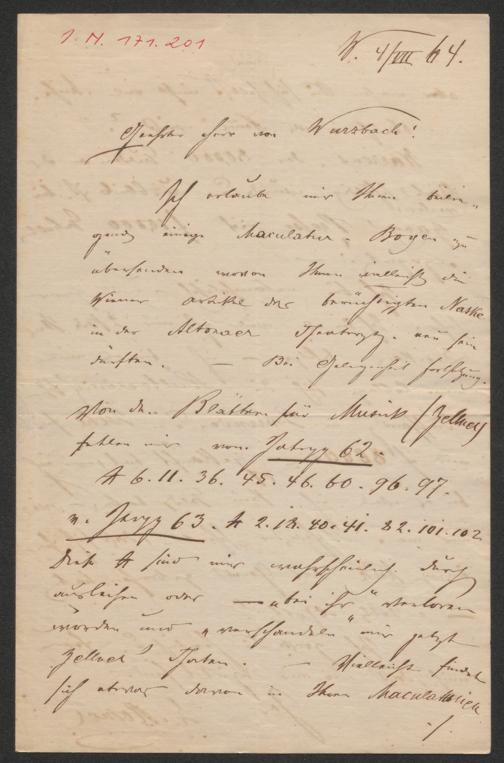 I. N. 171.201
W. 4/VII 64.
Geehrter Herr von Wurzbach!
Ich erlaube mir Ihnen beilie-
gend einige Maculatur-Bogen zu
übersenden wovon Ihnen vielleicht die
Wiener Artikel des berüchtigten Naske
in der Altonaer Theaterztg. neu sein
dürften. — Bei Gelegenheit Fortsetzung.
Von den Blättern für Musik (Zellner)
fehlen mir vom Jahrgg 62.
№ 6. 11. 36. 45. 46. 60. 96. 97.
v. Jargg 63. № 2. 18. 40. 41. 82. 101. 102
Diese № sind mir wahrscheinlich durch
ausleihen oder — verloren
worden und „verschandeln" mir jetzt
Zellners Thaten. — Vielleicht findet
sich etwas davon in Ihren Maculaturen
./.